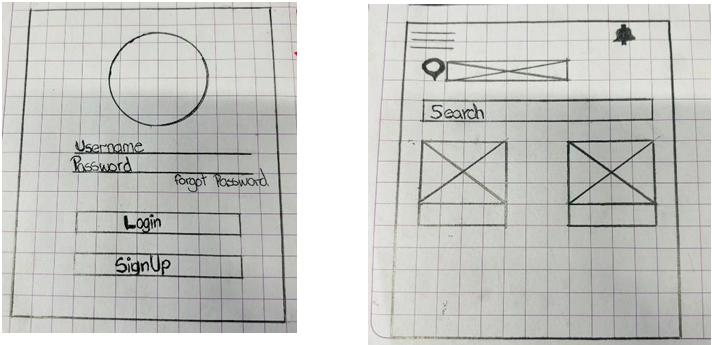 Username
Password
forgot Password
Login
SignUp
Search